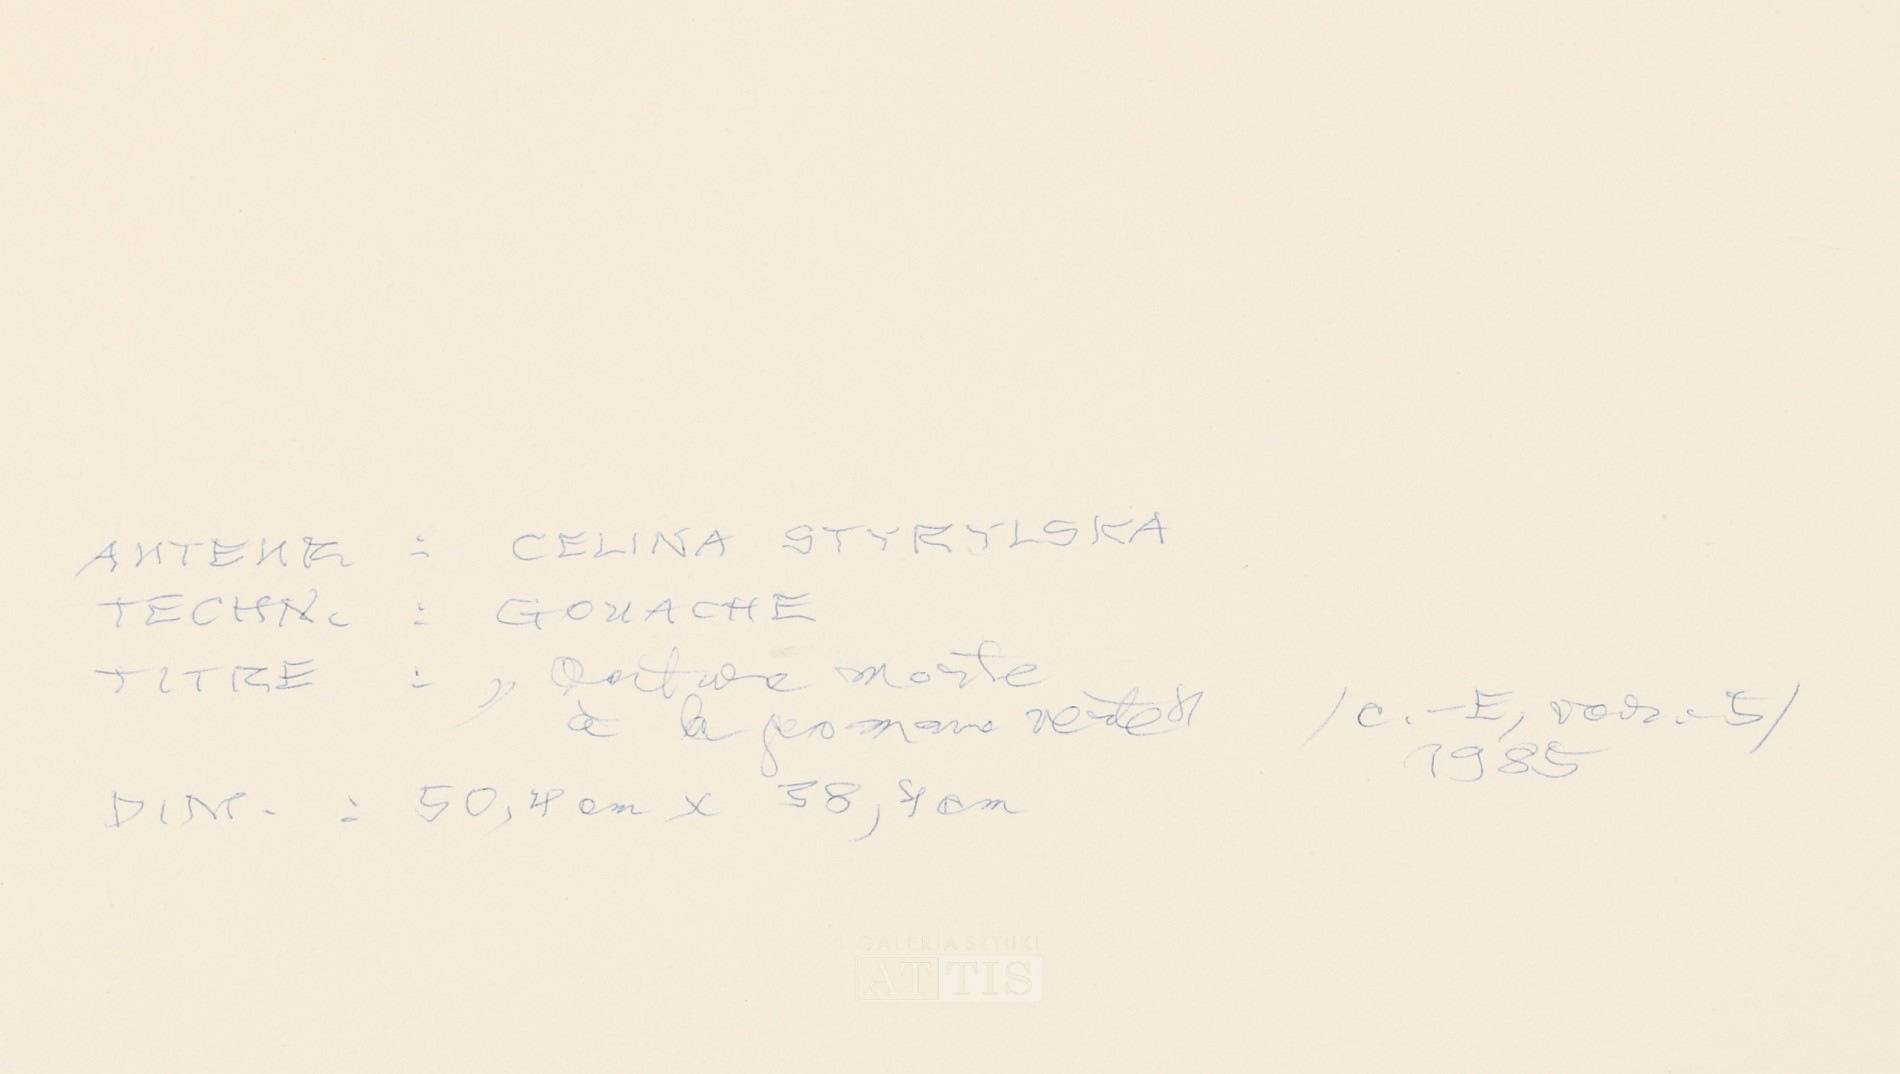 AUTEUR : CELINA STYRYLSKA
TECHN. : GOUACHE
TITRE : „Nature morte
à la pomme verte" /c.-E, var.-5/
1985
DIM. : 50,4 cm x 38,4 cm
GALERIA SZTUKI
ATTIS